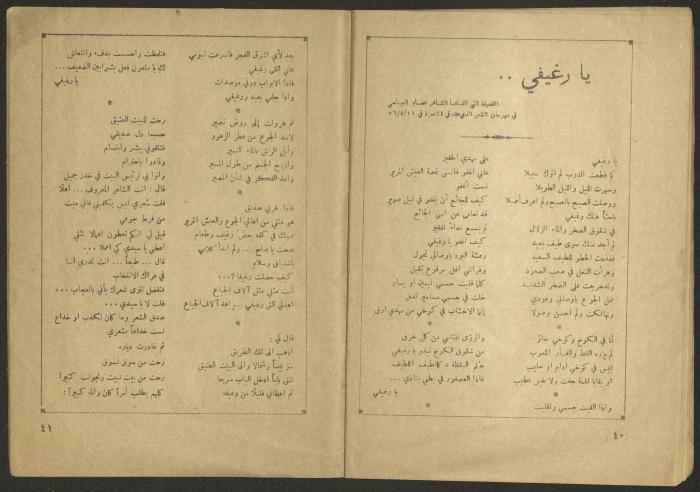 يا رغيفي ..
القصيدة التي القاها الشاعر عصام العباسي
في مهرجان الشعر الذي عقد في الناصرة في ٥٦/٨/١١
يا رغيفي
كم قطعت الدرب لم اترك سبيلا
وسهرت الليل والليل الطويلا
ووصلت الصبح بالصبح ولم اعرف أصيلا
باحثاً عنك رغيفي
في شقوق الصخر والماء الزلال
لم أجد منك سوى طيف بعيد
فغددت الخطو للطيف السعيد
وهرأت النعل في صعب الصعود
وتدحرجت على الصخر الشديد
عمل الجوع باوصالي وعودي
وتهالكت ولم احسن وصولا
*
أنا في الكوخ وكوخي خائر
لم يزره القط والفأر اللعوب
ليس في كوخي ادام او حليب
او بقايا لقمة جفت ولا خبز عطيب
*
واذا القيت جسمي وتقلبت
على مهدي الحقير
علني اغفو فانسى غصة العيش المرير
لست أغفو
كيف للجائع أن يغفو في ليل ضرير
قد تعامى عن اسى الجائع
لم يسمع نداء الفقير
كيف اغفو يا رغيفي
رعشة البرد باوصالي تجول
وفراشي اهل مرفوع ثقيل
كلما قلبت جسمي ليمين او يسار
خلت في جسمي مسامير تدق
إنها الاخشاب في كوخي من مهدي ارق
*
والرؤى تنثاني من كل خرق
من شقوق الكوخ تبدو يا رغيفي
حلم اليقظة ، كالطيف اللطيف
فاذا العصفور في بطني ينادي ...
يا رغيفي
*
٤٠
بعد لأي اشرق الفجر فاسرعت ليومي
علني القى رغيفي
فاذا الابواب دوني موصدات
واذا حلمي بعينه ورغيفي
*
ثم هرولت إلى روض نضير
لاسد الجوع من عطر الزهور
وأبل الريق بالماء النمير
واريح الجسم من طول المسير
واعد الفكر في شأن المصير
*
فاذا قربي صديق
هو مثلي من اهالي الجوع والعيش المرير
تمسك في كفه بعض رغيف وطعام
صحت يا صاح ... ولم ابدأ كلامي
باشتياق وسلام
كيف حصلت رغيفا ؟ ...
أنت مثلي مثل آلاف الجياع
اهدني الق رغيفي ... اهد آلاف الجياع
*
قال لي :
اذهب الى تلك الطريق
سر يميناً وشمالا والى البيت العتيق
تلق باباً ادخل الباب سريعا
ثم اعطاني قليلا من رغيفه
فتلمظت واحسست بدفء وانتعاش
لك يا ملعون فعل بشرايين الضعيف ...
يا رغيفي
*
رحت للبيت العتيق
حسبما دل صديقي
فتلقوني ببشر وابتسام
وقادوا باحترام
واتوا بي لرئيس البيت في خدر جميل
قال : انت الشاعر المعروف ... اهلا
قلت شعري ليس يكفيني فاني ميت
من فرط جوعي
قيل لي انكم تعطون اعمالا لمثلي
اعطني يا سيدي كي اعملا ...
قال ... طبعاً ... انت تدري اننا
في عراك الانتخاب
فتفضل لنرى شعرك يأتي بالعجاب ...
قلت لا يا سيدي ...
صدق الشعر وما كان لكذب او خداع
لست خداعاً بشعري
ثم غادرت دياره
رحت من سوق لسوق
رحت من بيت لبيت وتجولت كثيرا
كلهم يطلب أمراً كان والله كبيرا :
٤١